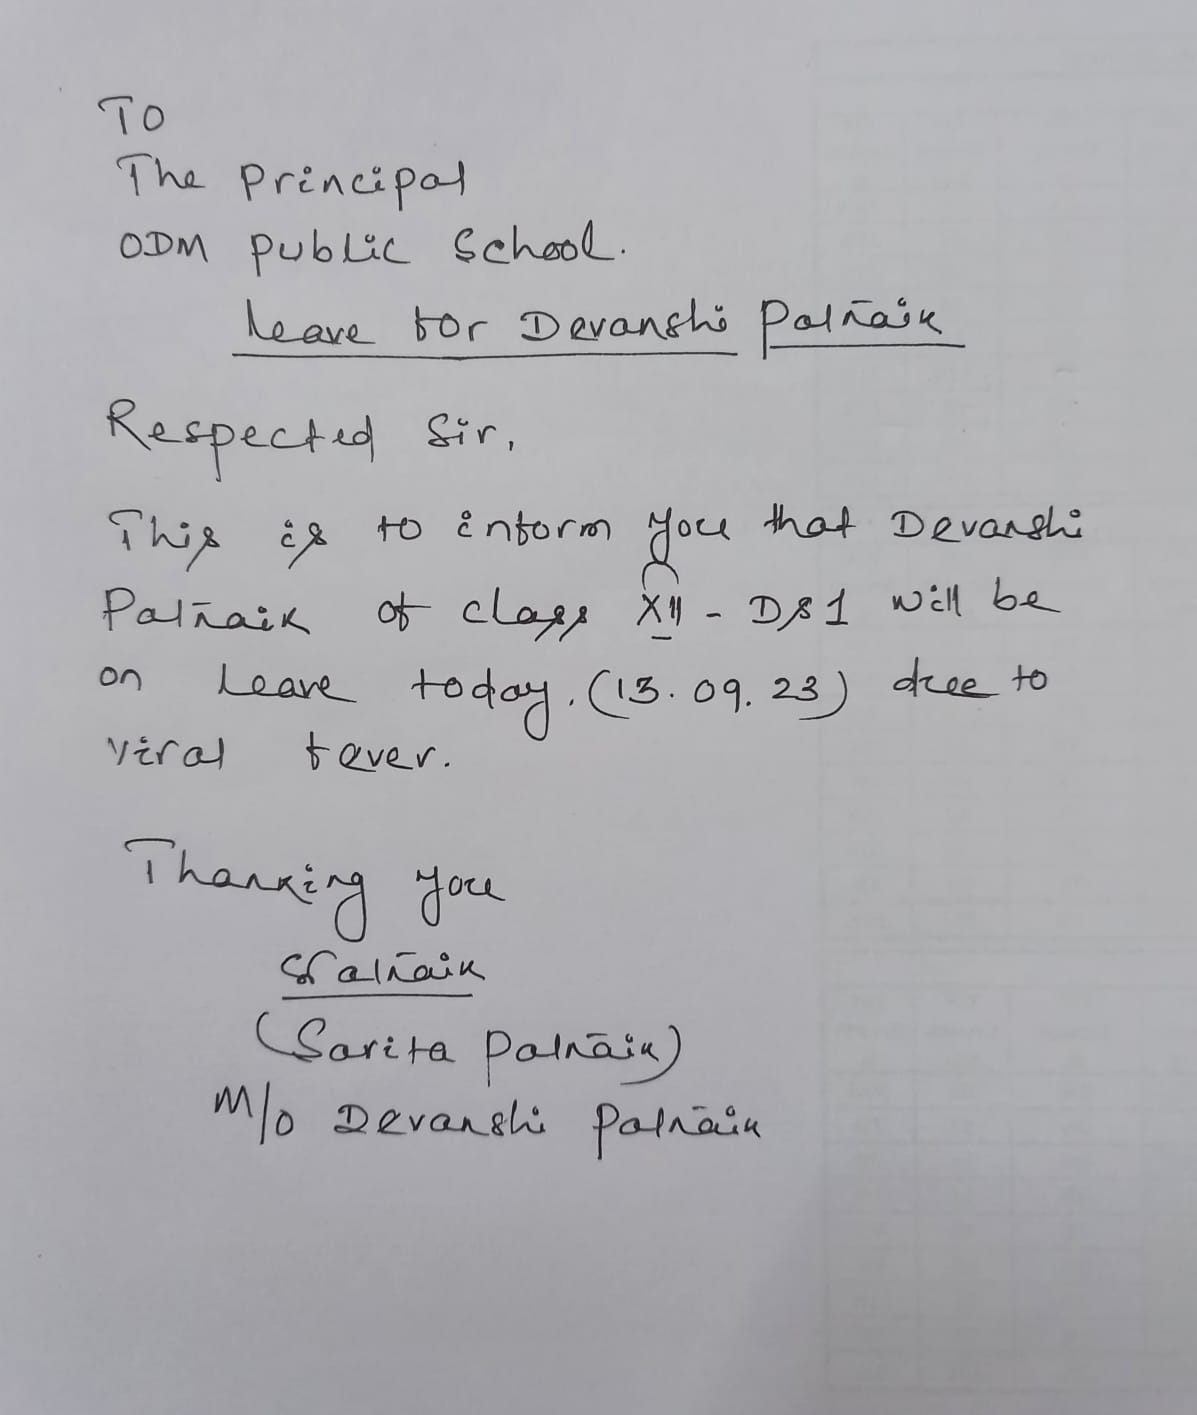 To
The Principal
ODM Public School.
Leave for Devanshi Patnaik
Respected Sir,
This is to inform you that Devanshi
Patnaik of class XII - DS1 will be
on leave today. (13.09.23) due to
viral fever.
Thanking you
SPatnaik
(Sarita Patnaik)
M/o Devanshi Patnaik